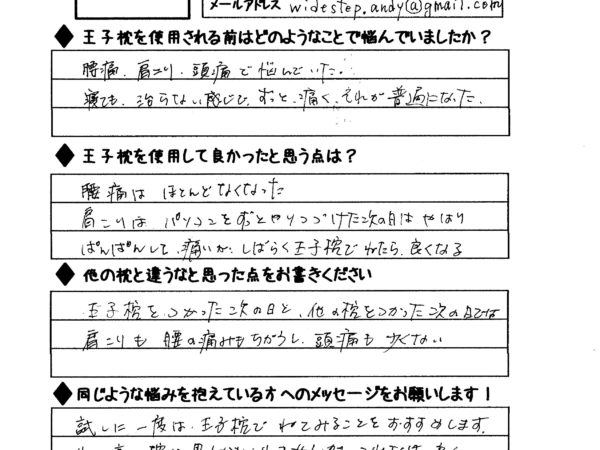 メールアドレス widestep.andy@gmail.com
◆王子枕を使用される前はどのようなことで悩んでいましたか？
腰痛、肩こり、頭痛で悩んでいた。
寝ても、治らない感じで、ずっと、痛く、それが普通になった。
◆王子枕を使用して良かったと思う点は？
腰痛は ほとんどなくなった
肩こりは パソコンをずっとやりつづけた次の日は やはり
ぱんぱんして、痛いが、しばらく王子枕で ねたら、良くなる
◆他の枕と違うなと思った点をお書きください
王子枕を、つかった次の日と、他の枕をつかった次の日では
肩こりも 腰の痛みもちがうし、頭痛も 少くない
◆同じような悩みを抱えている方へのメッセージをお願いします！
試しに一度は、王子枕で ねてみることを おすすめします。